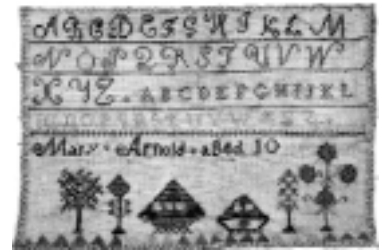 A B C D E F G H I K L M
N O P Q R S T U V W
X Y Z . A B C D E F G H I J K L
Mary Arnold aged 10